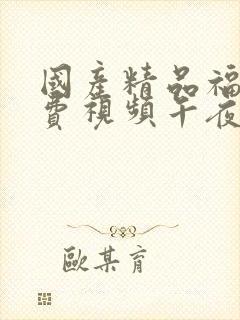 國産精品福
費視頻午夜
歐某育